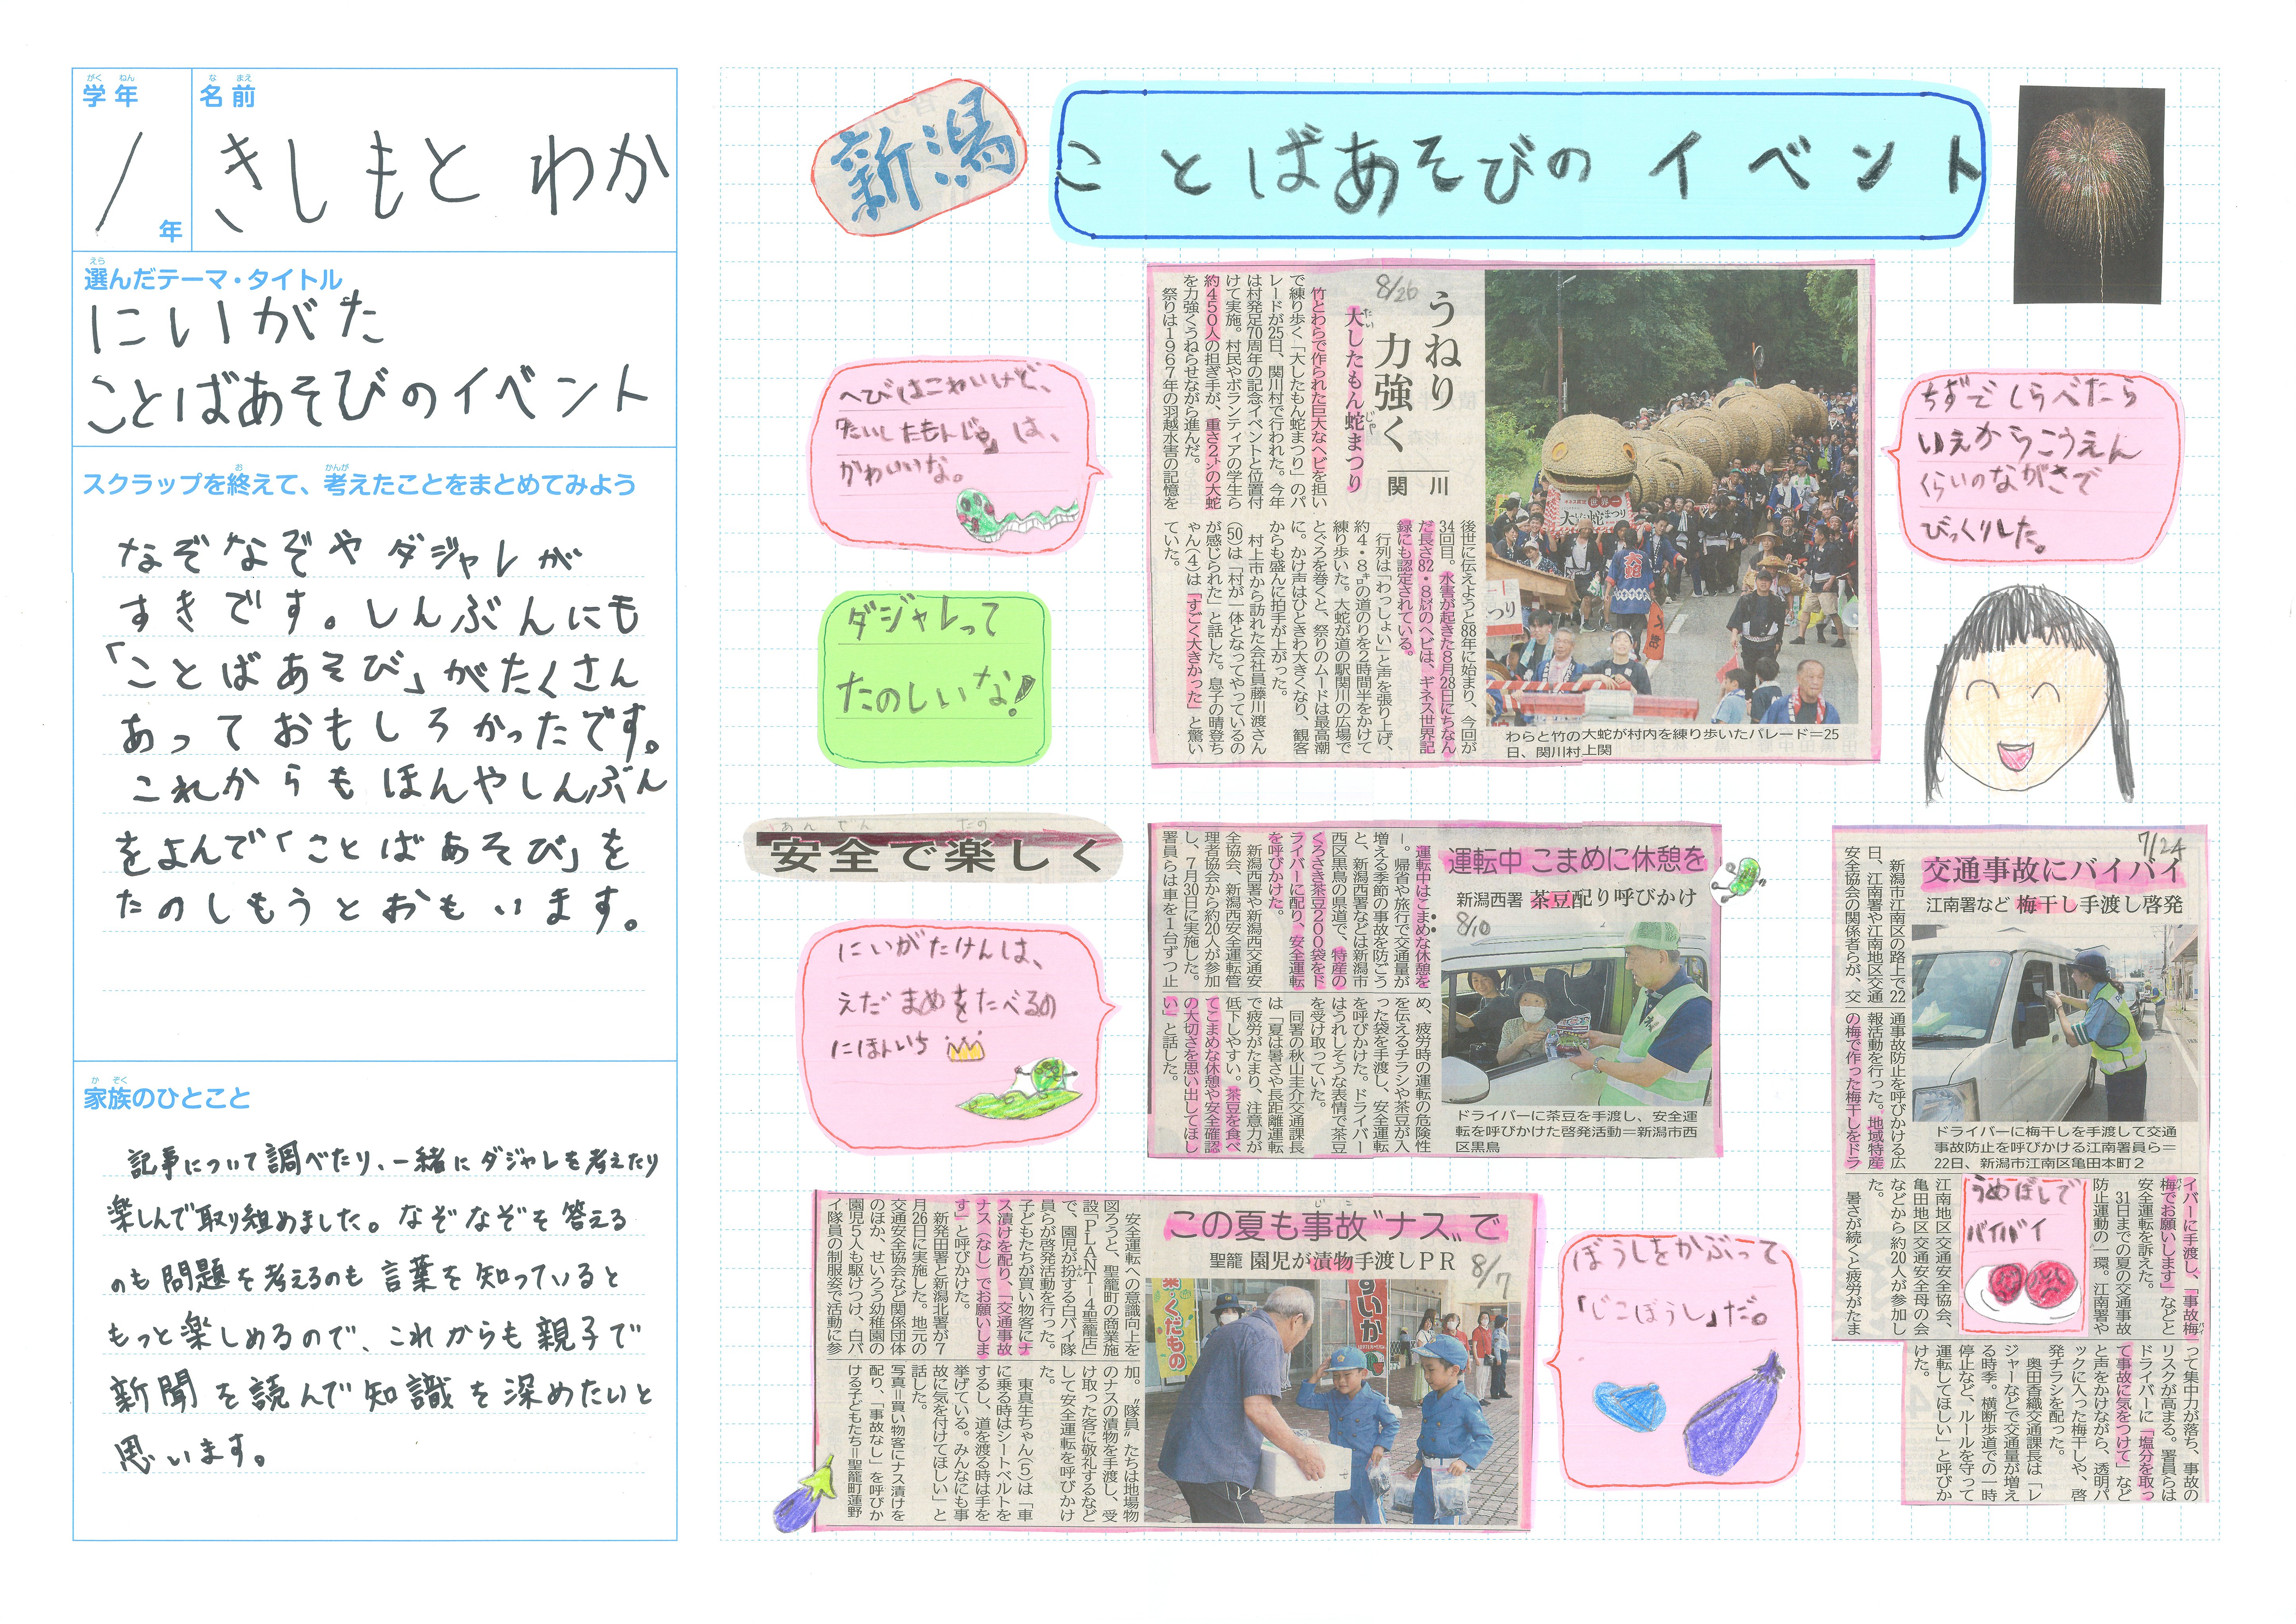 がく ねん
学 年
1
年
な まえ
名 前
きしもと わか
えら
選んだテーマ・タイトル
にいがた
ことばあそびのイベント
お かんが
スクラップを終えて、考えたことをまとめてみよう
なぞなぞや ダジャレが
すきです。しんぶんにも
「ことばあそび」がたくさん
あっておもしろかったです。
これからもほんやしんぶん
をよんで「ことばあそび」を
たのしもうとおもいます。
か ぞく
家族のひとこと
記事について調べたり、一緒にダジャレを考えたり
楽しんで取り組めました。なぞなぞを答える
のも問題を考えるのも言葉を知っていると
もっと楽しめるので、これからも親子で
新聞を読んで知識を深めたいと
思います。
新潟
ことばあそびの イベント
8/26
うねり
力強く
関川
大したもん蛇まつり
たい じゃ
竹とわらで作られた巨大なヘビを担い
で練り歩く「大したもん蛇まつり」のパ
レードが25日、関川村で行われた。今年
は村発足70周年の記念イベントと位置付
けて実施。村民やボランティアの学生ら
約450人の担ぎ手が、重さ2㌧の大蛇
を力強くうねらせながら進んだ。
祭りは1967年の羽越水害の記憶を
後世に伝えようと88年に始まり、今回が
34回目。水害が起きた8月28日にちなん
だ長さ82・8㍍のヘビは、ギネス世界記
録にも認定されている。
行列は「わっしょい」と声を張り上げ、
約4・8㌔の道のりを2時間半をかけて
練り歩いた。大蛇が道の駅関川の広場で
とぐろを巻くと、祭りのムードは最高潮
に。かけ声はひときわ大きくなり、観客
からも盛んに拍手が上がった。
村上市から訪れた会社員藤川渡さん
(50)は「村が一体となってやっているの
が感じられた」と話した。息子の晴登ち
ゃん(4)は「すごく大きかった」と驚い
ていた。
わらと竹の大蛇が村内を練り歩いたパレード＝25
日、関川村上関
へびはこわいけど、
「たいしたもんじゃ」は、
かわいいな。
ダジャレって
たのしいな!
ちずでしらべたら
いえからこうえん
くらいのながさで
びっくりした。
あんぜん たの
安全で楽しく
にいがたけんは、
えだまめをたべるの
にほんいち
運転中 こまめに休憩を
新潟西署 茶豆配り呼びかけ
8/10
運転中はこまめな休憩を
―。帰省や旅行で交通量が
増える季節の事故を防ごう
と、新潟西署などは新潟市
西区黒鳥の県道で、特産の
くろさき茶豆200袋をド
ライバーに配り、安全運転
を呼びかけた。
新潟西署や新潟西交通安
全協会、新潟西安全運転管
理者協会から約20人が参加
し、7月30日に実施した。
署員らは車を1台ずつ止
め、疲労時の運転の危険性
を伝えるチラシや茶豆が入
った袋を手渡し、安全運転
を呼びかけた。ドライバー
はうれしそうな表情で茶豆
を受け取っていた。
同署の秋山圭介交通課長
は「夏は暑さや長距離運転
で疲労がたまり、注意力が
低下しやすい。茶豆を食べ
てこまめな休憩や安全確認
の大切さを思い出してほし
い」と話した。
ドライバーに茶豆を手渡し、安全運
転を呼びかけた啓発活動＝新潟市西
区黒鳥
7/24
交通事故にバイバイ
江南署など 梅干し手渡し啓発
新潟市江南区の路上で22
日、江南署や江南地区交通
安全協会の関係者らが、交
通事故防止を呼びかける広
報活動を行った。地域特産
の梅で作った梅干しをドラ
イバーに手渡し、「事故梅
バイ
梅でお願いします」などと
安全運転を訴えた。
31日までの夏の交通事故
防止運動の一環。江南署や
江南地区交通安全協会、
亀田地区交通安全母の会
などから約20人が参加し
た。
暑さが続くと疲労がたま
って集中力が落ち、事故の
リスクが高まる。署員らは
ドライバーに「塩分を取っ
て事故に気をつけて」など
と声をかけながら、透明パ
ックに入った梅干しや、啓
発チラシを配った。
奥田香織交通課長は「レ
ジャーなどで交通量が増え
る時季。横断歩道での一時
停止など、ルールを守って
運転してほしい」と呼びか
けた。
ドライバーに梅干しを手渡して交通
事故防止を呼びかける江南署員ら＝
22日、新潟市江南区亀田本町2
うめぼしで
バイバイ
じこ
この夏も事故〝ナス〟で
聖籠 園児が漬物手渡しPR
8/7
安全運転への意識向上を
図ろうと、聖籠町の商業施
設「PLANT―4聖籠店」
で、園児が扮する白バイ隊
員らが啓発活動を行った。
子どもたちが買い物客にナ
ス漬けを配り、「交通事故
ナス(なし)でお願いしま
す」と呼びかけた。
新発田署と新潟北署が7
月26日に実施した。地元の
交通安全協会など関係団体
のほか、せいろう幼稚園の
園児5人も駆けつけ、白バ
イ隊員の制服姿で活動に参
加。〝隊員〟たちは地場物
のナスの漬物を手渡し、受
け取った客に敬礼するなど
して安全運転を呼びかけ
た。
東真生ちゃん(5)は「車
に乗る時はシートベルトを
するし、道を渡る時は手を
挙げている。みんなにも事
故に気を付けてほしい」と
話した。
写真＝買い物客にナス漬けを
配り、「事故なし」を呼びか
ける子どもたち＝聖籠町蓮野
くだもの
すいか
ぼうしをかぶって
「じこぼうし」だ。